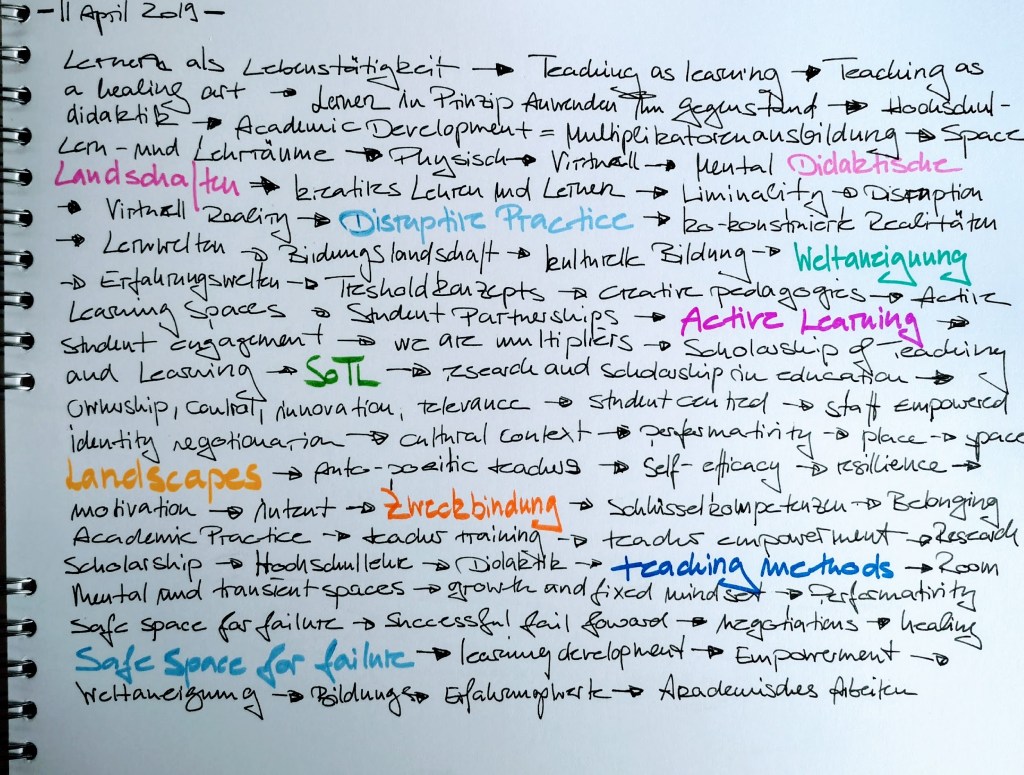 - 11 April 2019 -
Lernen als Lebenstätigkeit → Teaching as learning → Teaching as
a healing art → Lernen in Prinzip Anwenden Am gegenstand → Hochschul-
didaktik → Academic Development = Multiplikatorenausbildung → Space
Lern- und Lehrräume → Physisch → Virtuell → Mental Didaktische
Landschaften → kreatives Lehren und Lernen → Liminality → Disruption
→ Virtuell Reality → Disruptive Practice → ko-konstruierte Realitäten
→ Lernwelten → Bildungslandschaft → kulturelle Bildung → Weltaneignung
→ Erfahrungswelten → Tresholdkonzepts → creative pedagogies → Active
Learning Spaces → Student Partnerships → Active Learning →
student engagement → we are multipliers → Scholarship of Teaching
and Learning → SoTL → research and scholarship in education →
Ownership, control, innovation, relevance → student centred → staff empowered
identity negotionarion → cultural context → performativity → place → space
Landscapes → Auto-poeitic teachers → Self-efficacy → resillience →
motivation → Intent → Zweckbindung → Schlüsselkompetenzen → Belonging
Academic Practice → teacher training → teacher empowerment → Research
Scholarship → Hochschullehre → Didaktik → teaching methods → Room
Mental und transient spaces → growth and fixed mindset → Performativity
Safe space for failure → Successful fail foward → Negotiations → healing
Safe Space for failure → learning development → Empowerment →
Weltaneignung → Bildungs → Erfahrungswerte → Akademisches Arbeiten